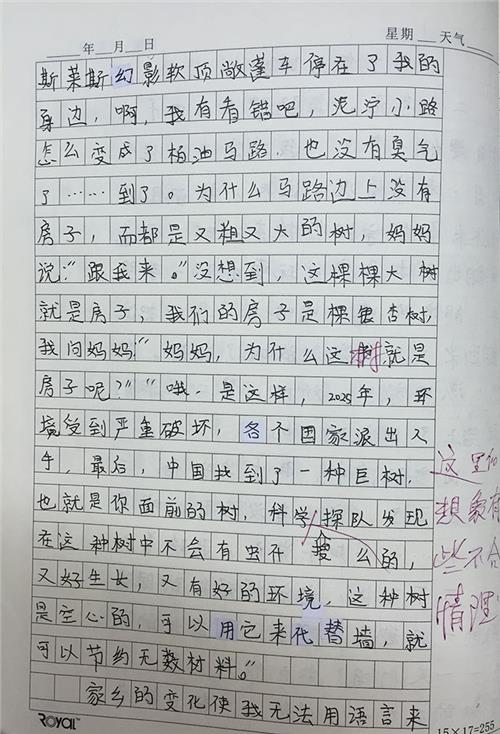 年 月 日 星期 天气
斯莱斯幻影软顶敞蓬车停在了我的
身边，啊，我有看错吧，泥泞小路
怎么变成了柏油马路．也没有臭气
了……到了。为什么马路边上没有
房子，而都是又粗又大的树，妈妈
说：“跟我来。”没想到，这棵棵大树
就是房子，我们的房子是棵银杏树，
我问妈妈：“妈妈，为什么这树就是
房子呢？”“哦，是这样，2025年，环
境受到严重破坏，各个国家派出人
手，最后，中国找到了一种巨树，
也就是你面前的树，科学探队发现
在这种树中不会有虫什么的，
又好生长，又有好的环境，这种树
是空心的，可以用它来代替墙，就
可以节约无数材料。”
家乡的变化使我无法用语言来
这里的
想象有
些不合
情理
ROYAL 15×17=255